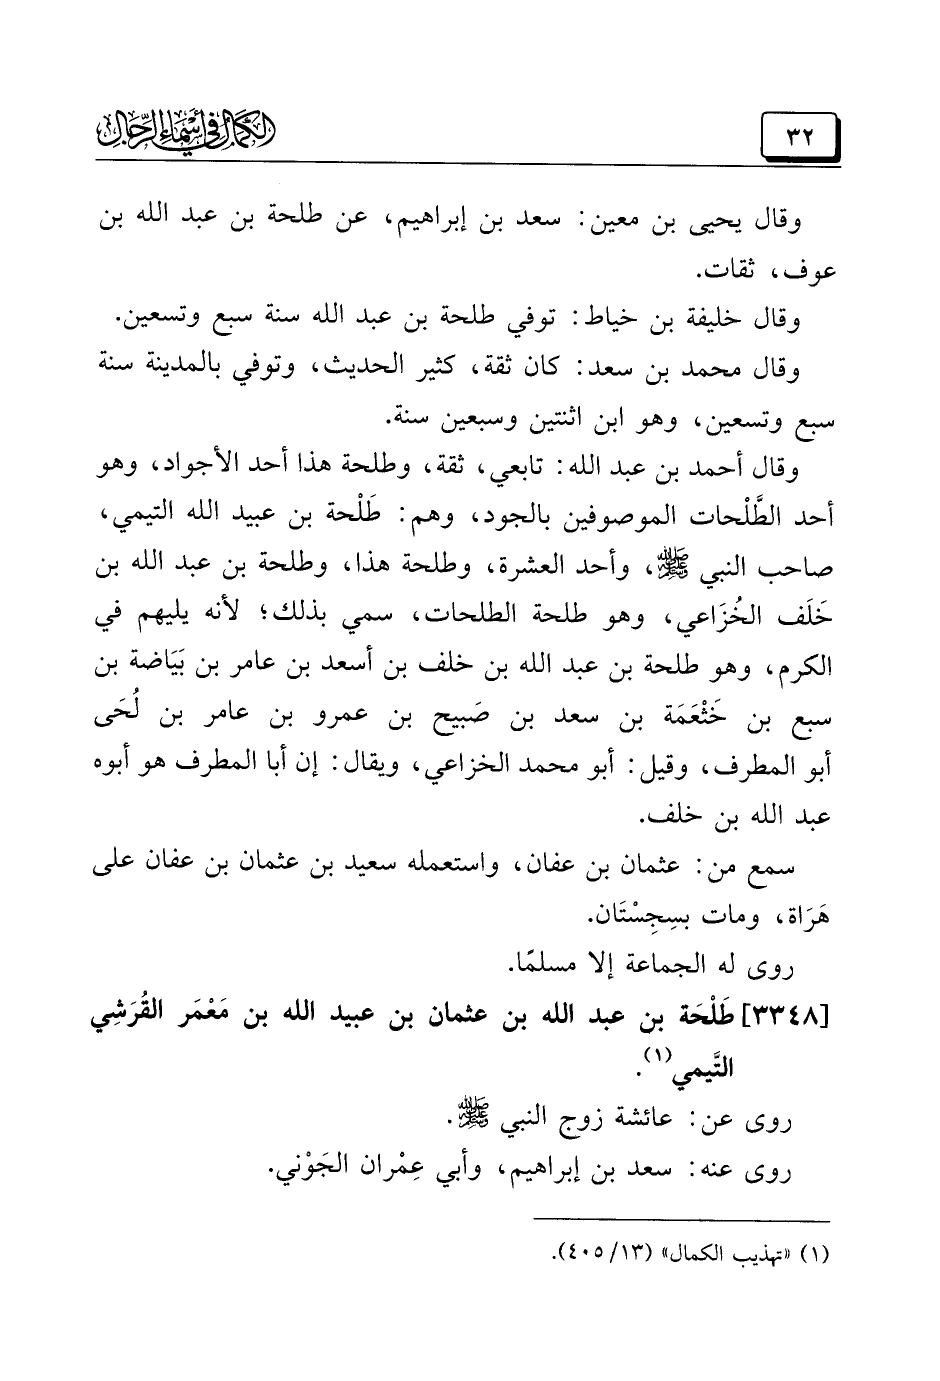 الكمال في أسماء الرجال
٣٢
وقال يحيى بن معين: سعد بن إبراهيم، عن طلحة بن عبد الله بن
عوف، ثقات.
وقال خليفة بن خياط: توفي طلحة بن عبد الله سنة سبع وتسعين.
وقال محمد بن سعد: كان ثقة، كثير الحديث، وتوفي بالمدينة سنة
سبع وتسعين، وهو ابن اثنتين وسبعين سنة.
وقال أحمد بن عبد الله: تابعي، ثقة، وطلحة هذا أحد الأجواد، وهو
أحد الطَّلْحات الموصوفين بالجود، وهم: طَلْحة بن عبيد الله التيمي،
صاحب النبي ﷺ، وأحد العشرة، وطلحة هذا، وطلحة بن عبد الله بن
خَلَف الخُزَاعي، وهو طلحة الطلحات، سمي بذلك؛ لأنه يليهم في
الكرم، وهو طلحة بن عبد الله بن خلف بن أسعد بن عامر بن بَيَاضة بن
سبع بن خَثْعَمَة بن سعد بن صَبيح بن عمرو بن عامر بن لُحَى
أبو المطرف، وقيل: أبو محمد الخزاعي، ويقال: إن أبا المطرف هو أبوه
عبد الله بن خلف.
سمع من: عثمان بن عفان، واستعمله سعيد بن عثمان بن عفان على
هَرَاة، ومات بسِجِسْتَان.
روى له الجماعة إلا مسلمًا.
[٣٣٤٨] طَلْحَة بن عبد الله بن عثمان بن عبيد الله بن مَعْمَر القُرَشِي
التَّيمي(١).
روى عن: عائشة زوج النبي ﷺ.
روى عنه: سعد بن إبراهيم، وأبي عِمْران الجَوْني.
(١) «تهذيب الكمال» (١٣/ ٤٠٥).